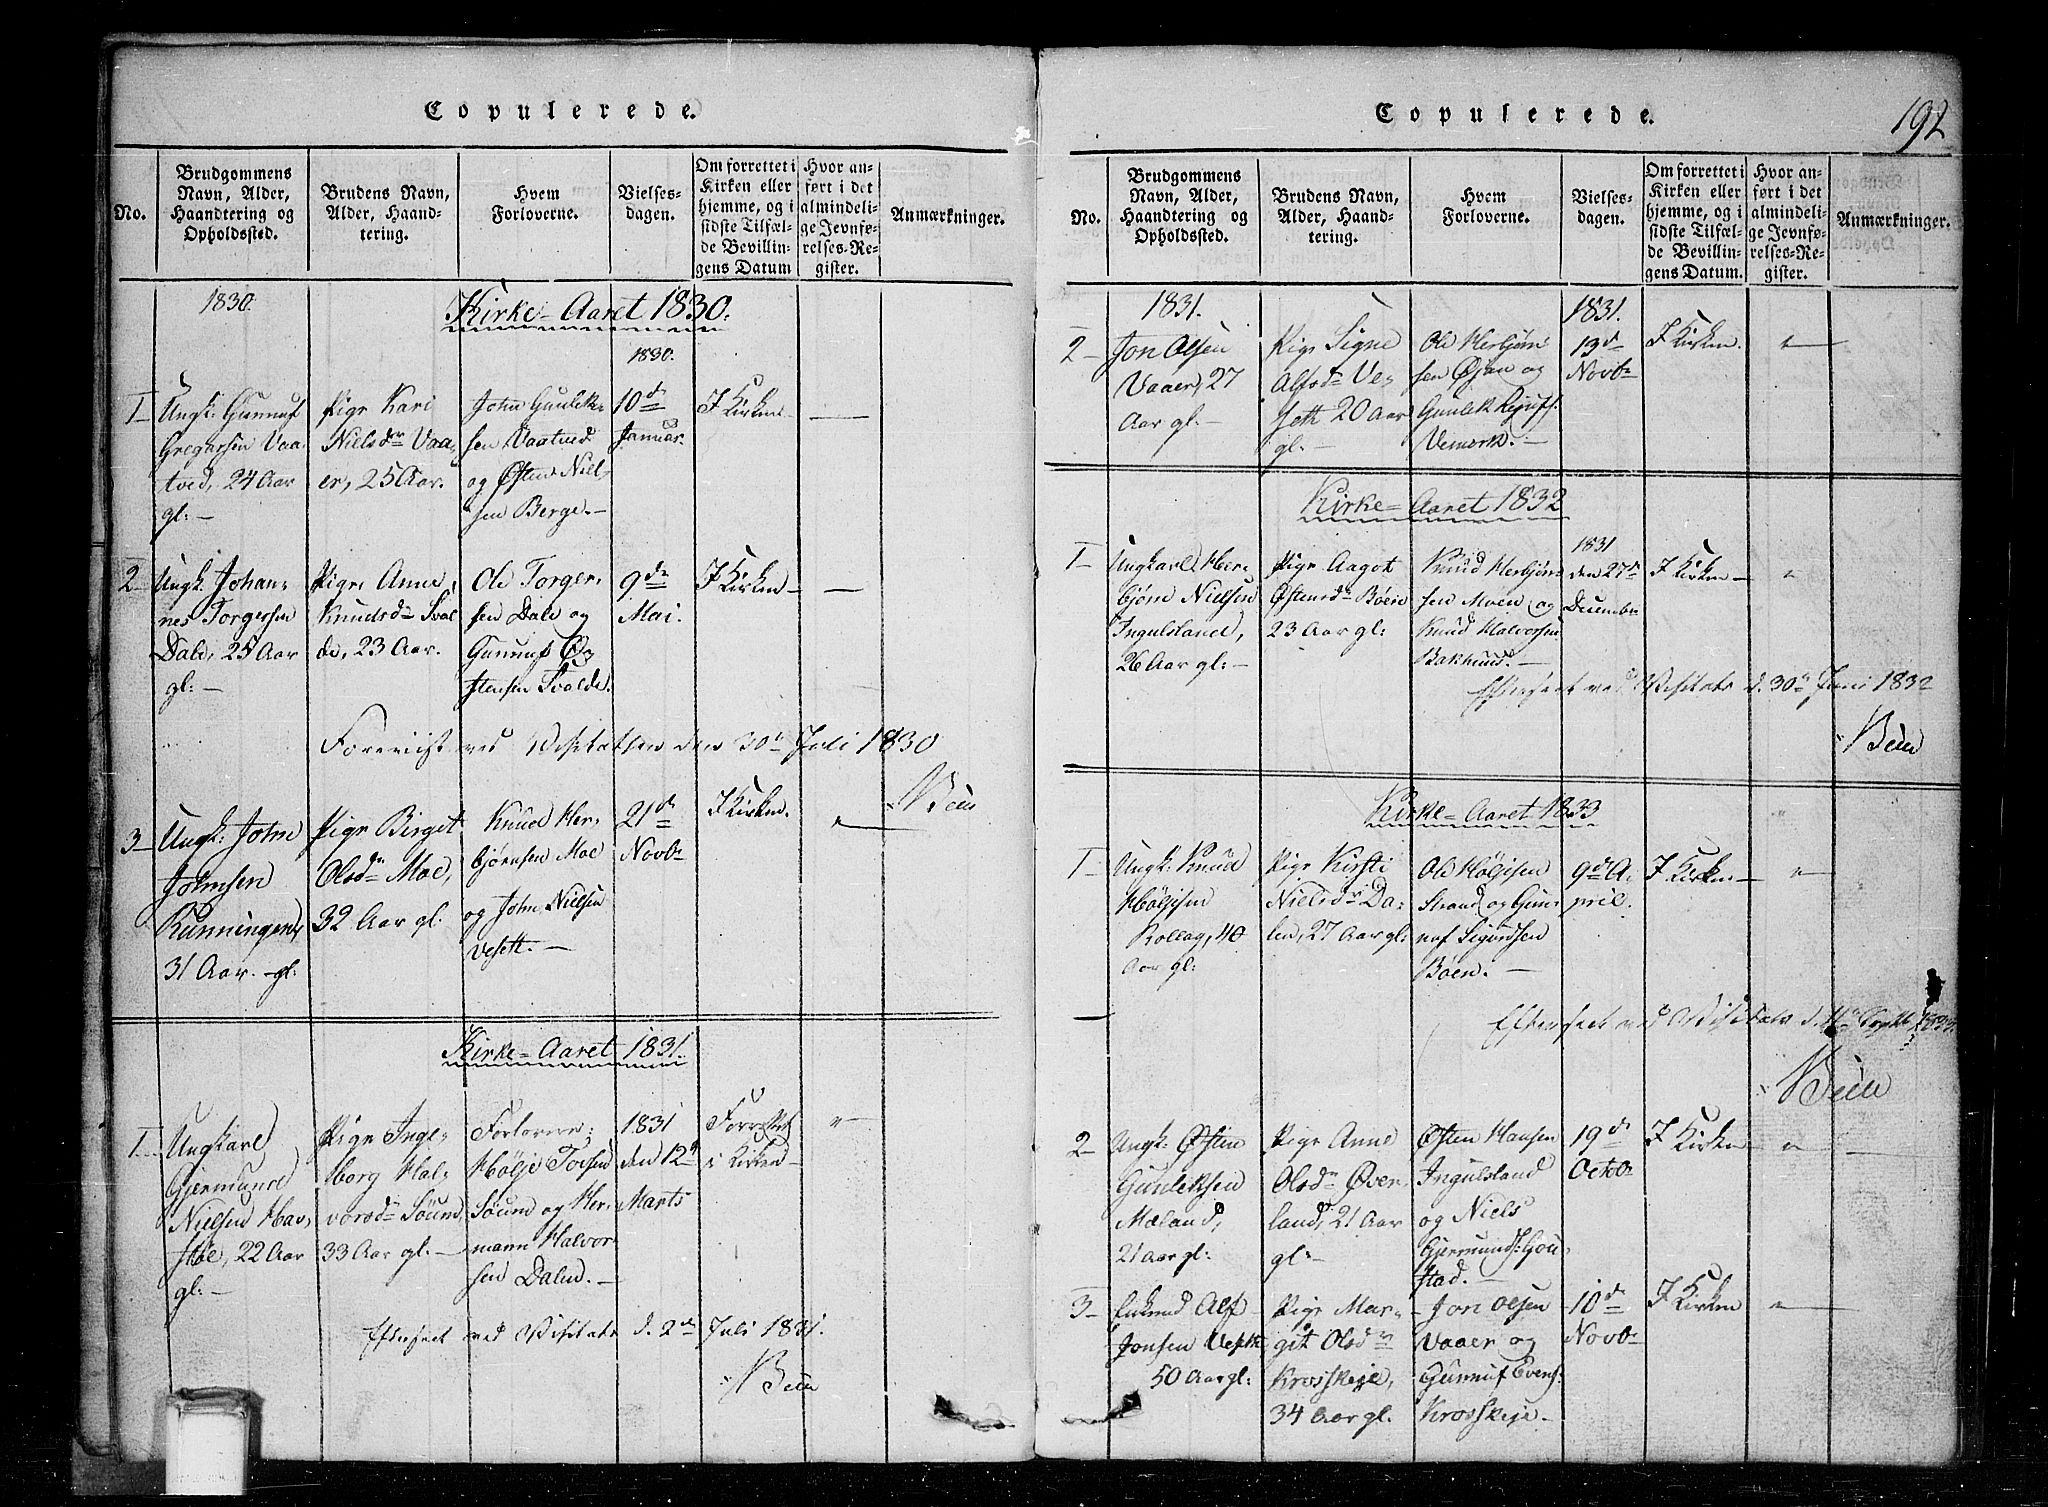 Copulerede.
No.
Brudgommens
Navn, Alder,
Haandtering og
Opholdssted.
Brudens Navn,
Alder, Haand-
tering.
Hvem
Forloverne.
Vielses-
dagen.
Om forrettet i
Kirken eller
hjemme, og i
sidste Tilfæl-
de Bevillin-
gens Datum
Hvor an-
ført i det
almindeli-
ge Jevnfø-
relses-Re-
gister.
Anmærkninger.
1830.
Kirke-Aaret 1830.
1830.
1
Ungk: Gunnuf
Gregarsen Vaa-
tved, 24 Aar
gl: —
Pige Kari
Nielsdr Vaa-
er, 25 Aar.
John Gunlek-
sen Vaatved
og Østen Niel-
sen Berge. —
10de
Januar.
I Kirken
—
2
Ungk. Johan-
nes Torgersen
Dale, 25 Aar
gl: —
Pige Anne
Knudsdr Sval-
de, 23 Aar.
Ole Torger-
sen Dale og
Gunnuf Øs-
tensen Svalde.
9de
Mai.
I Kirken
—
Foreviist ved Visitatsen den 30te Juli 1830
3
Ungk: John
Johnsen
Runningen,
31 Aar. gl:
Pige Birget
Olsdr Moe,
32 Aar gl:
Knud Her-
bjørnsen Moe
og John Nielsen
Vesett. —
21de
Novbr
I Kirken.
Kirke-Aaret 1831.
1
Ungkarl
Gjermund
Nielsen Hav-
støe, 22 Aar
gl: —
Pige Inge-
borg Hal-
vorsdr Søum,
33 Aar gl: —
Forlovere:
Hølje Torsen
Søum og Her-
mann Halvor-
sen Dalen. —
1831
den 12te
Marts
Forrettet
i Kirken —
Efterseet ved Visitats d. 2den Juli 1831.
Copulerede.
192
No.
Brudgommens
Navn, Alder,
Haandtering og
Opholdssted.
Brudens Navn,
Alder, Haand-
tering.
Hvem
Forloverne.
Vielses-
dagen.
Om forrettet i
Kirken eller
hjemme, og i
sidste Tilfæl-
de Bevillin-
gens Datum.
Hvor an-
ført i det
almindeli-
ge Jevnfø-
relses-Re-
gister.
Anmærkninger.
1831.
1831.
2
Jon Olsen
Vaaer, 27
Aar gl. —
Pige Signe
Alfsdr Ve-
seth 20 Aar
gl: —
Ole Herbjørn-
sen Øjan og
Gunlek
Vemork. —
13de
Novbr
I Kirken.
Kirke-Aaret 1832
1
Ungkarl Her-
bjørn Nielsen
Ingulsland,
26 Aar gl: —
Pige Aagot
Østensdr Bøen
23 Aar gl:
Knud Herbjørn-
sen Moen og
Knud Halvorsen
Bakhuus. —
1831
den 27de
December
I Kirken —
Efterseet ved Visitats d. 30te Juni 1832
Kirke-Aaret 1833
1
Ungk: Knud
Høljesen
Rollag, 40
Aar gl:
Pige Kirsti
Nielsdr Da-
len, 27 Aar gl:
Ole Høljesen
Strand og Gun-
nuf Sigurdsen
Bøen. —
9de A-
pril.
I Kirken —
Efterseet ved Visitats d. 1833.
2
Ungk: Østen
Gunleksen
Mæland,
21 Aar gl:
Pige Anne
Olsdr Øver-
land, 21 Aar
gl: —
Østen Hansen
Ingulsland
og Niels
Gjermunds: Gou-
stad. —
19de
Octobr
I Kirken
3
Enkmd Alf
Jonsen Veseth
50 Aar gl:
Pige Mar-
git Olsdr
Krosskeje,
34 Aar gl.
Jon Olsen
Vaaer og
Gunnuf Evens:
Krosskeje. —
10de
Novbr
I Kirken